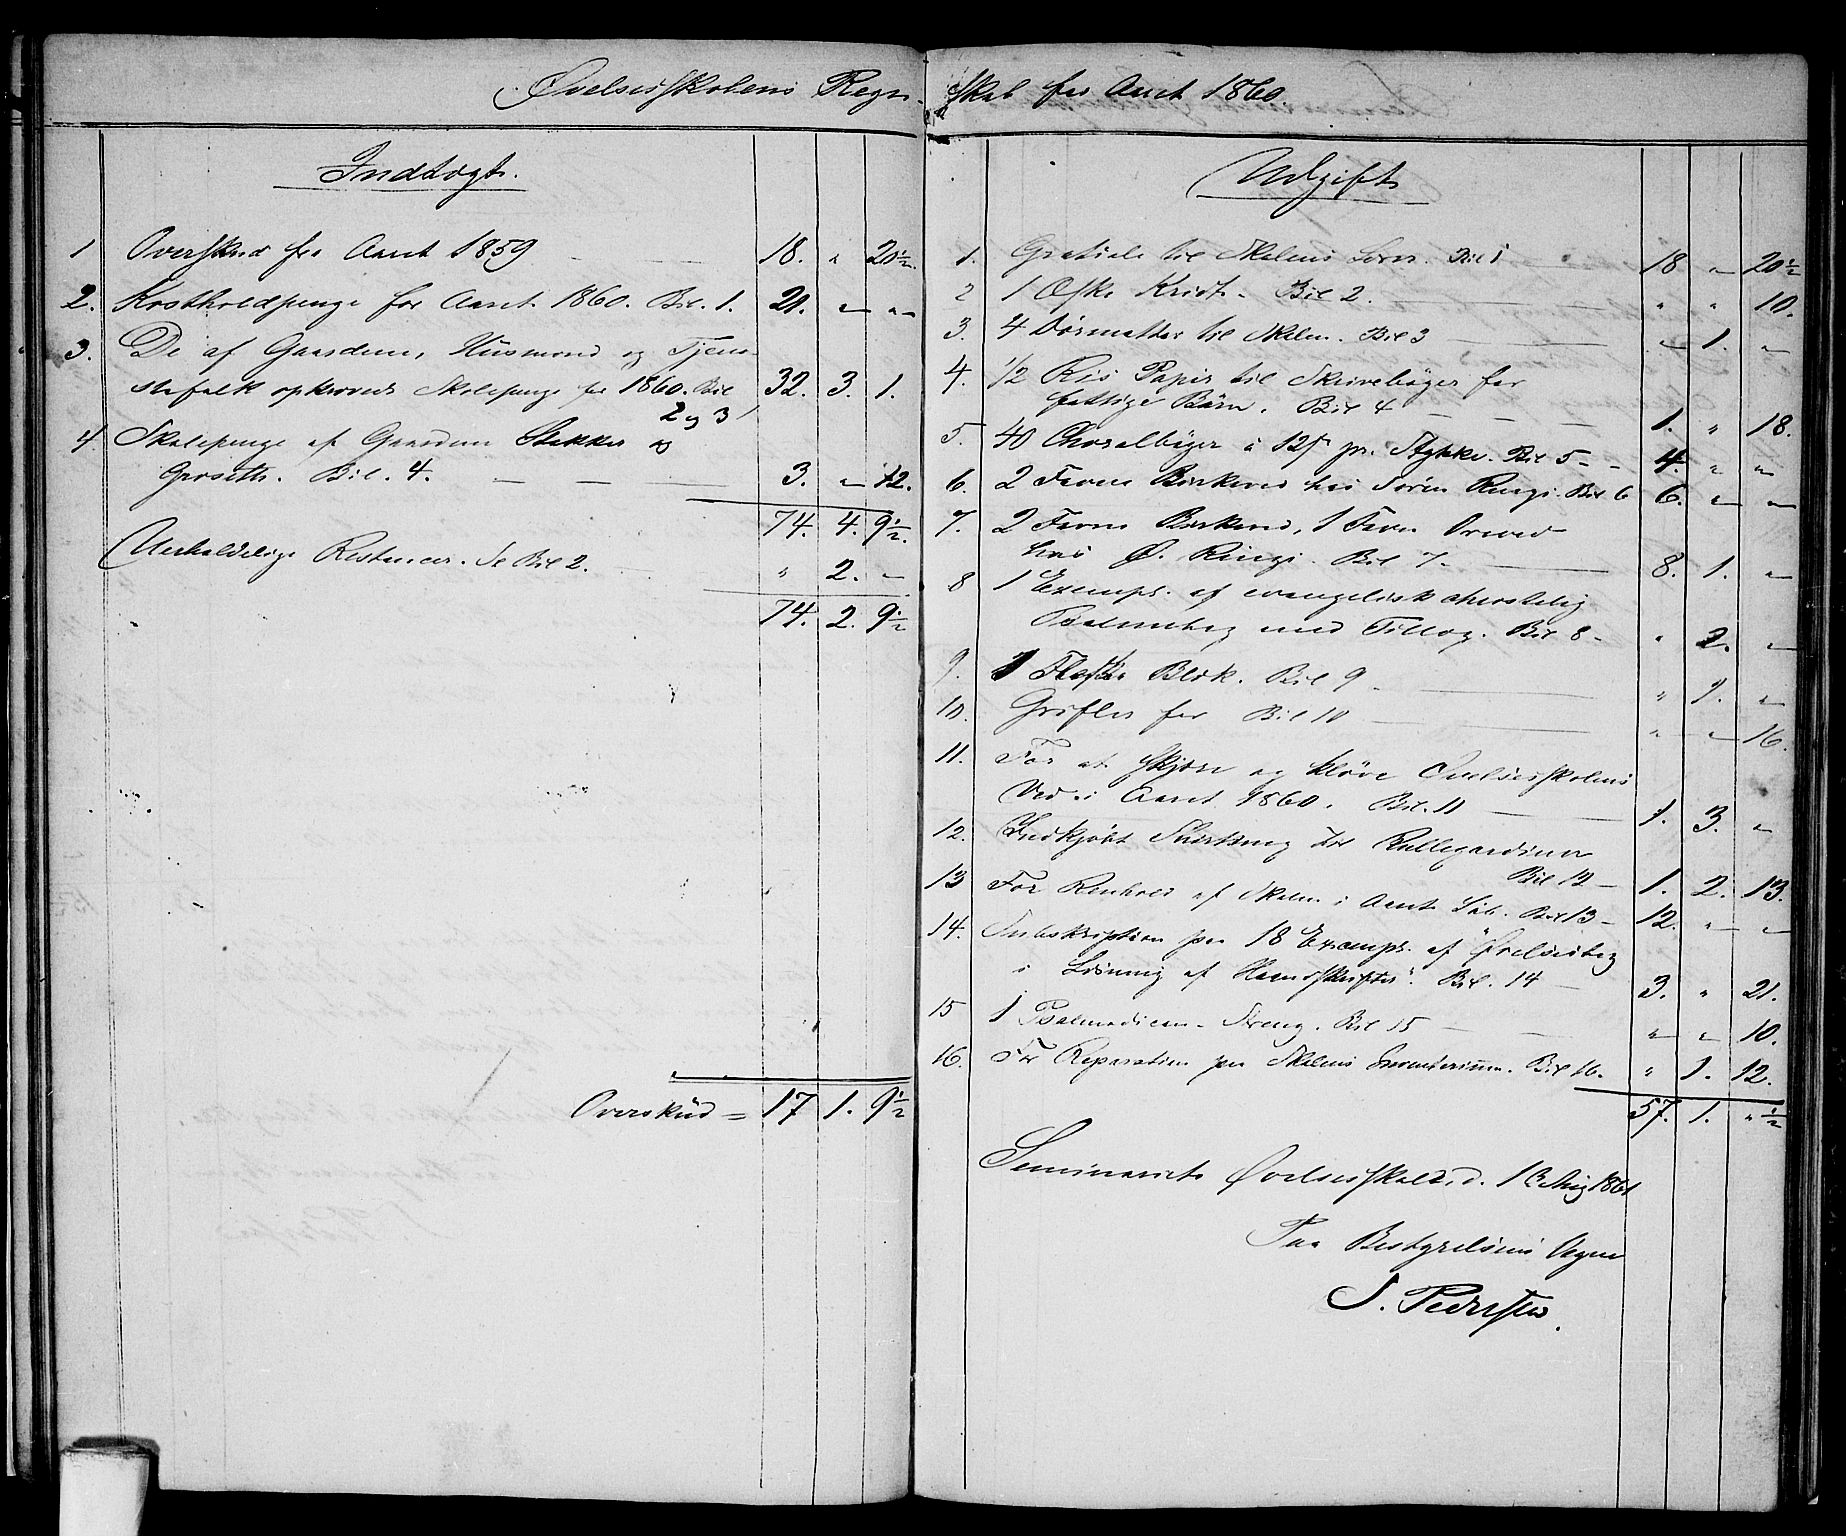 Øvelsesskolens Regnskab for Aaret 1860.
Indtægt.
1 Overskud fra Aaret 1859 18. " 20½.
2. Kostholdpenge for Aaret 1860. Bil. 1. 21. " "
3. De af Gaardene, Husmænd og Tjene-
stefolk opkrævede Skolepenge for 1860. Bil 32. 3. 1.
2 og 3
4. Skolepenge af Gaardene Stokker og
Grosett. Bil. 4. 3. " 12.
74. 4. 9½.
Uerholdelige Restancer. Se Bil 2. " 2. "
74. 2. 9½
Overskud = 17 1. 9½
Udgift
1. Gratiale til Skolens Lærer. Bil 1 18 " 20½
2 1 Æske Kridt. Bil 2. " " 10.
3. 4 Dørmatter til Skolen. Bil 3 " 1. "
4. 1/2 Ris Papir til Skrivebøger for
fattige Børn. Bil 4 1. " 18.
5. 40 Choralbøger à 12 s pr. Stykke. Bil 5 4. " "
6. 2 Favne Birkeved hos Søren Ringi. Bil 6 6. " "
7. 2 Favne Birkeved, 1 Favn Oreved
hos O. Ringi. Bil 7. 8. 1. "
8 1 Exempl. af evangelisk christelig
Psalmebog med Tillæg. Bil 8 " 2. "
9. 1 Flaske Blæk. Bil 9 " 1. "
10. Grifler for Bil 10 " " 16.
11. For at skjære og kløve Øvelsesskolens
Ved i Aaret 1860. Bil. 11 1. 3. "
12. Indkjøbt til Rullegardiner
Bil 12 1. 2. 13.
13 For Renhold af Skolen i Aarets Løb. Bil 13 12. " "
14. Subskription paa 18 Exempl. af "Øvelsesbog
i Læsning af Haandskrifter". Bil. 14 3. " 21.
15 1 Psalmodicon-Streng. Bil 15 " " 10.
16. For Reparation paa Skolens Inventarium. Bil 16. " 1. 12.
57. 1. " ½
Seminariets Øvelsesskole d. 1861
Paa Bestyrelsens Vegne
S. Pedersen.